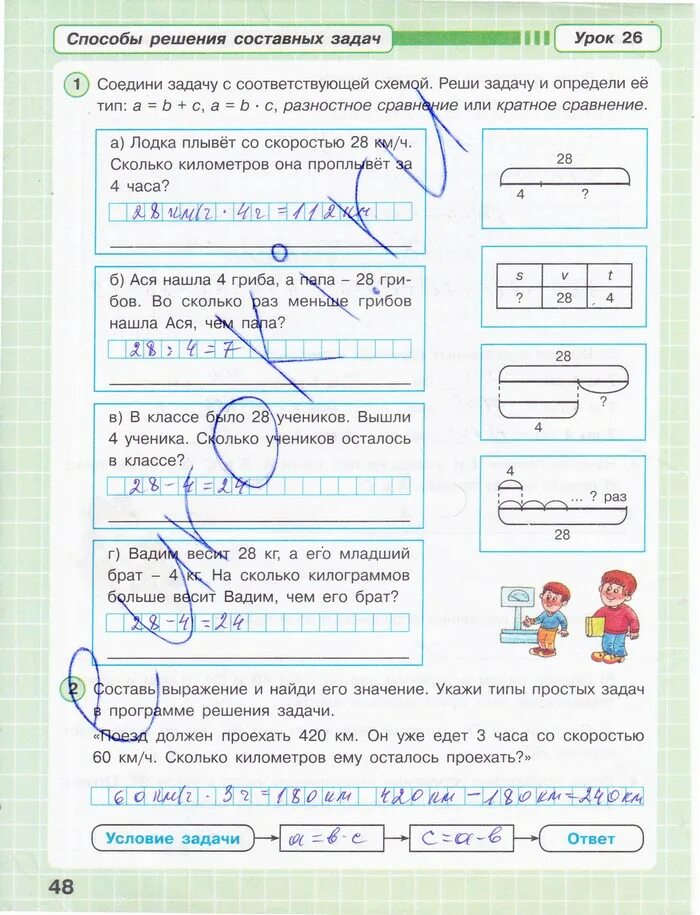 Способы решения составных задач
Урок 26
1 Соедини задачу с соответствующей схемой. Реши задачу и определи её
тип: a = b + c, a = b · c, разностное сравнение или кратное сравнение.
а) Лодка плывёт со скоростью 28 км/ч.
Сколько километров она проплывёт за
4 часа?
28 км/ч · 4ч = 112 км
28
4 ?
б) Ася нашла 4 гриба, а папа – 28 гри-
бов. Во сколько раз меньше грибов
нашла Ася, чем папа?
28 : 4 = 7
s v t
? 28 4
в) В классе было 28 учеников. Вышли
4 ученика. Сколько учеников осталось
в классе?
28 - 4 = 24
28
?
4
г) Вадим весит 28 кг, а его младший
брат – 4 кг. На сколько килограммов
больше весит Вадим, чем его брат?
28 - 4 = 24
4
... ? раз
28
2 Составь выражение и найди его значение. Укажи типы простых задач
в программе решения задачи.
«Поезд должен проехать 420 км. Он уже едет 3 часа со скоростью
60 км/ч. Сколько километров ему осталось проехать?»
60 км/ч · 3ч = 180 км 420 км - 180 км = 240 км
Условие задачи
a = b · c
c = a - b
Ответ
48